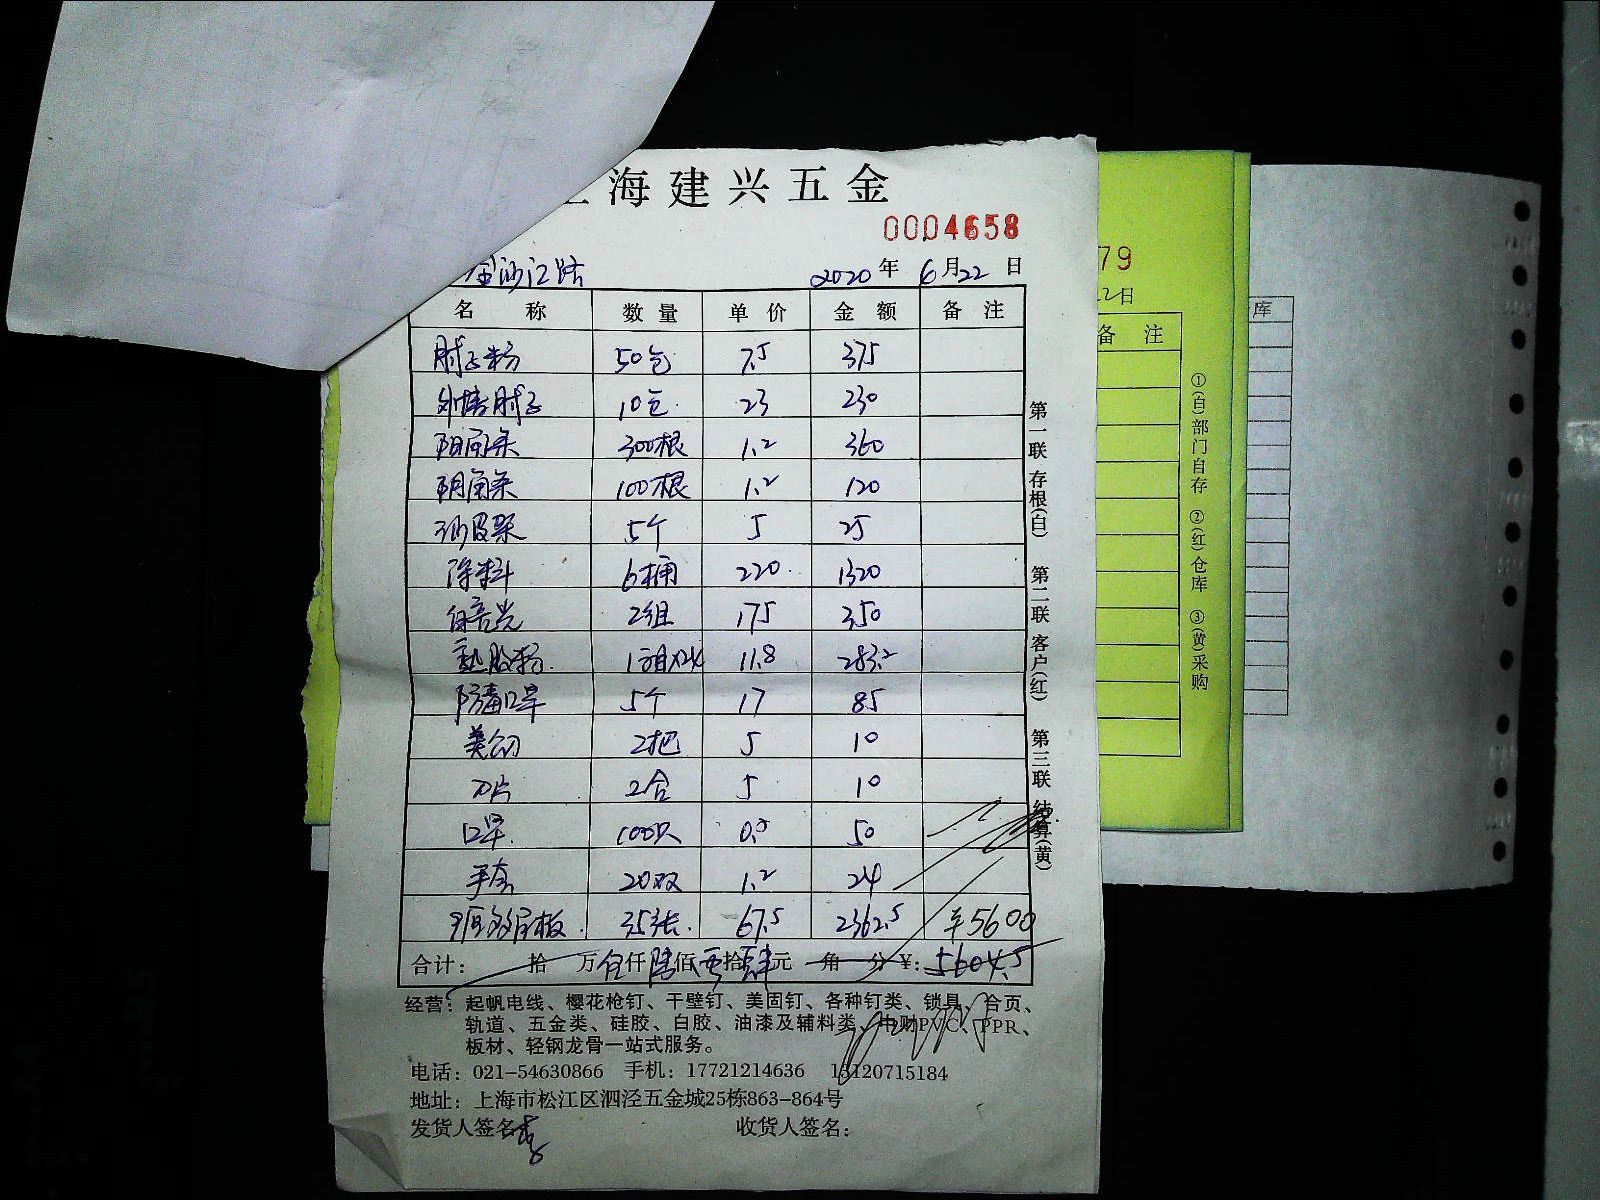 海建兴五金
0004658
金沙江路 2020年6月22日
名 称 数量 单价 金额 备注
腻子粉 50包 7.5 375
外墙腻子 10包 23 230
阳角条 300根 1.2 360
阴角条 100根 1.2 120
砂皮架 5个 5 25
涂料 6桶 220 1320
2组 175 350
熟胶粉 11.8 283.2
防毒口罩 5个 17 85
美工刀 2把 5 10
刀片 2合 5 10
口罩 100只 0.5 50
手套 20双 1.2 24
35张 67.5 2362.5 ¥5600
合计： 拾 万 伍仟陆佰零拾肆元 角 分 ¥：5604.5
经营：起帆电线、樱花枪钉、干壁钉、美固钉、各种钉类、锁具、合页、
轨道、五金类、硅胶、白胶、油漆及辅料类、电财PVC、PPR、
板材、轻钢龙骨一站式服务。
电话：021-54630866 手机：17721214636 13120715184
地址：上海市松江区泗泾五金城25栋863-864号
发货人签名 收货人签名：
第一联 存根(白) 第二联 客户(红) 第三联 结算(黄)
79
22日
备 注
①(白)部门自存 ②(红)仓库 ③(黄)采购
库